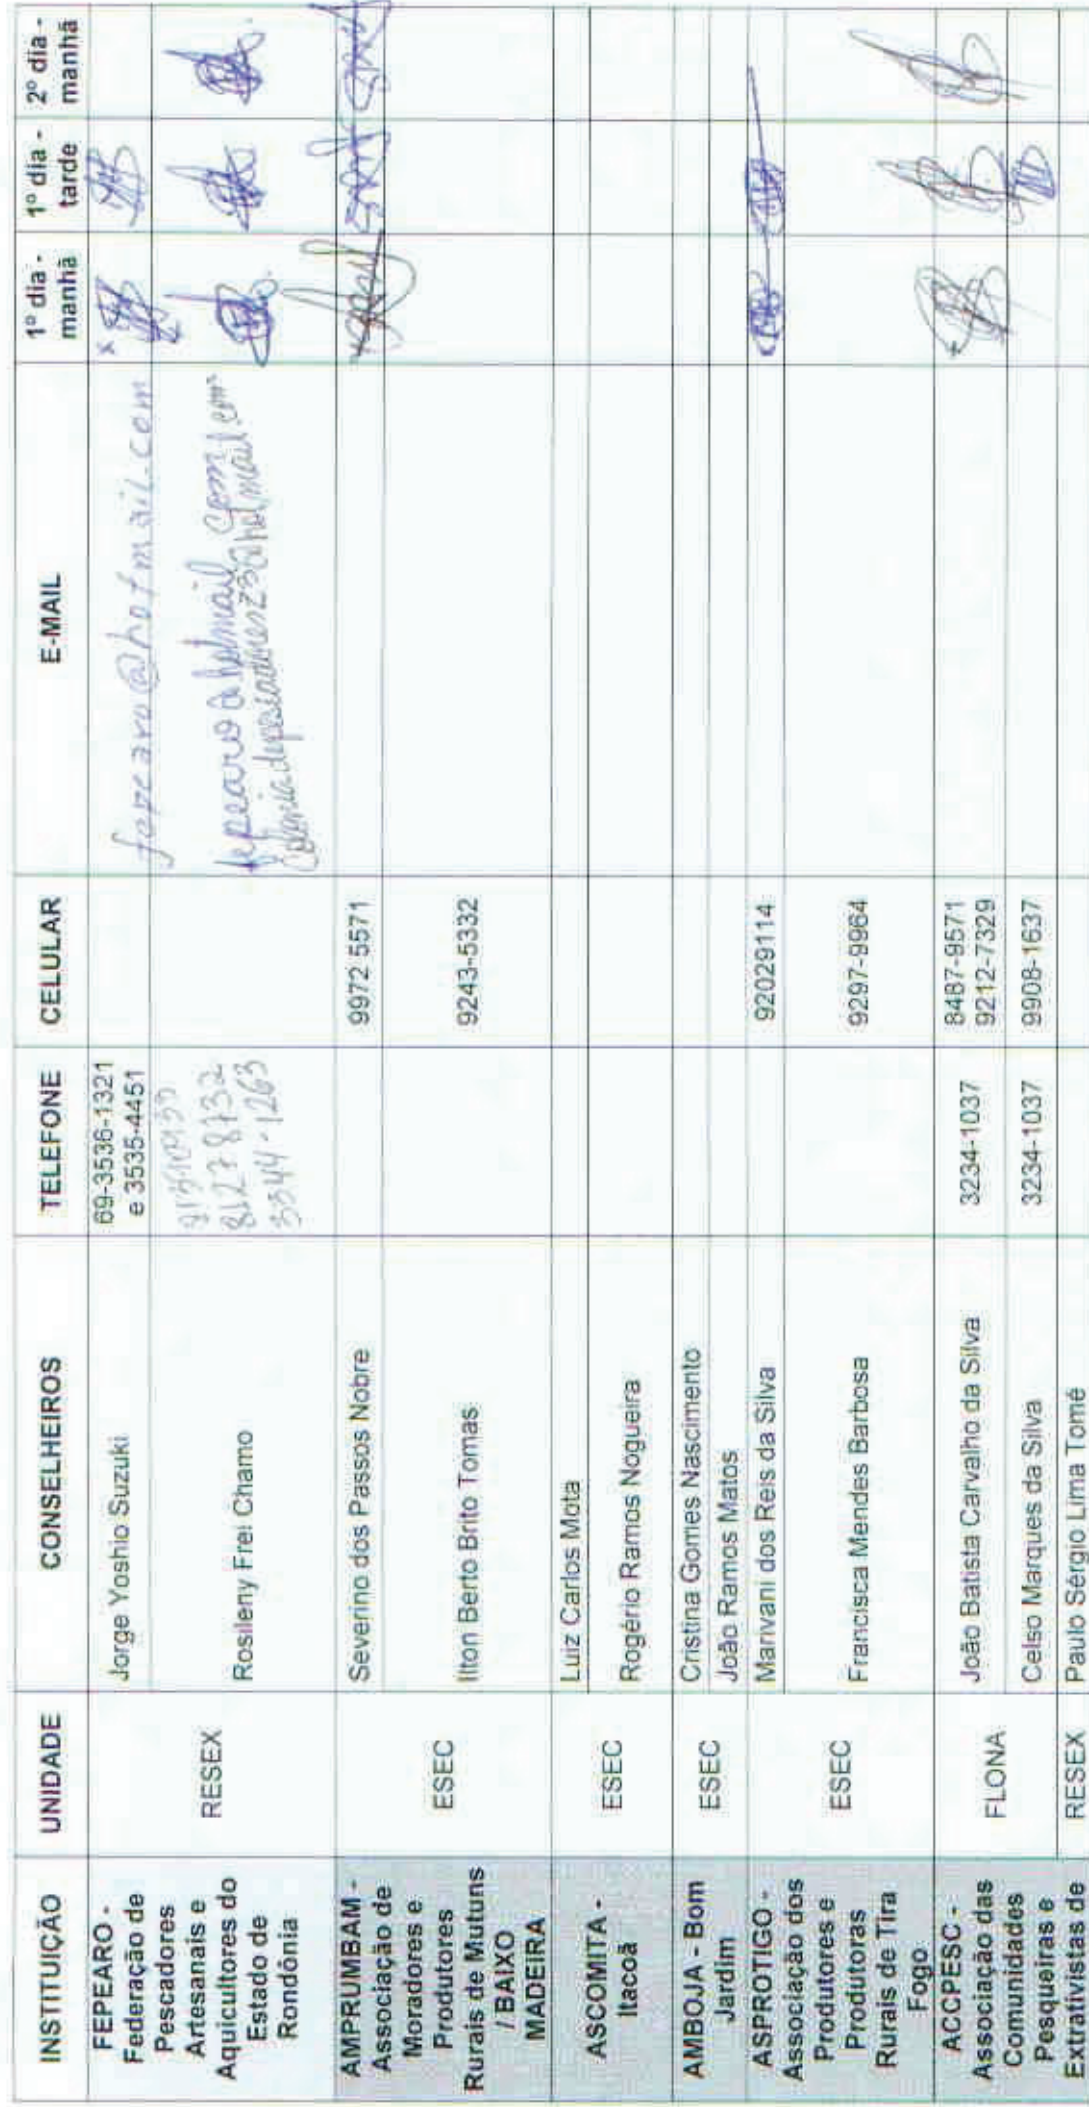 INSTITUIÇÃO UNIDADE CONSELHEIROS TELEFONE CELULAR E-MAIL 1º dia - manhã 1º dia - tarde 2º dia - manhã
FEPEARO -
Federação de
Pescadores
Artesanais e
Aquicultores do
Estado de
Rondônia
RESEX
Jorge Yoshio Suzuki
69-3536-1321
e 3535-4451
fepearo@hotmail.com
Rosileny Frei Chamo
8127 8732
3344-1263
fepearo@hotmail.com
coloniadepescadoresz3@hotmail.com
AMPRUMBAM -
Associação de
Moradores e
Produtores
Rurais de Mutuns
/ BAIXO
MADEIRA
ESEC
Severino dos Passos Nobre
9972 5571
Ilton Berto Brito Tomas
9243-5332
ASCOMITA -
Itacoã
ESEC
Luiz Carlos Mota
Rogério Ramos Nogueira
AMBOJA - Bom
Jardim
ESEC
Cristina Gomes Nascimento
João Ramos Matos
ASPROTIGO -
Associação dos
Produtores e
Produtoras
Rurais de Tira
Fogo
ESEC
Marivani dos Reis da Silva
92029114
Francisca Mendes Barbosa
9297-9964
ACCPESC -
Associação das
Comunidades
Pesqueiras e
Extrativistas de
FLONA
João Batista Carvalho da Silva
3234-1037
8487-9571
9212-7329
Celso Marques da Silva
3234-1037
9908-1637
RESEX
Paulo Sérgio Lima Tomé